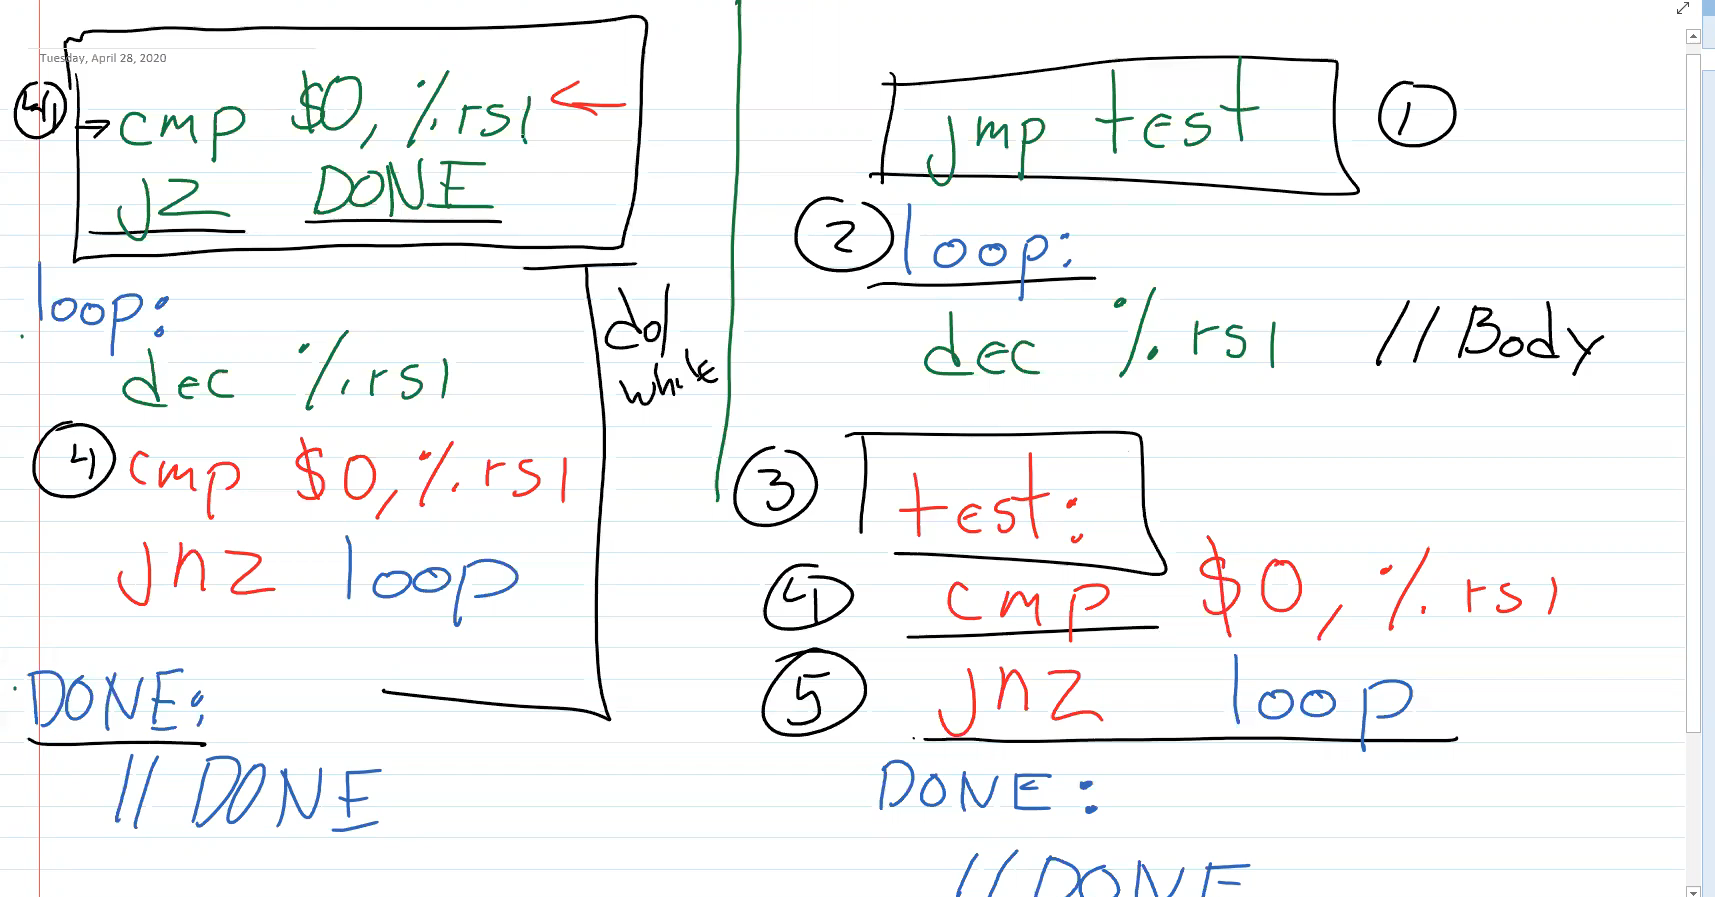 Tuesday, April 28, 2020
4 cmp $0, %rsi
jz DONE
loop:
dec %rsi
do/
while
4 cmp $0, %rsi
jnz loop
DONE:
// DONE
jmp test 1
2 loop:
dec %rsi // Body
3 test:
4 cmp $0, %rsi
5 jnz loop
DONE:
// DONE